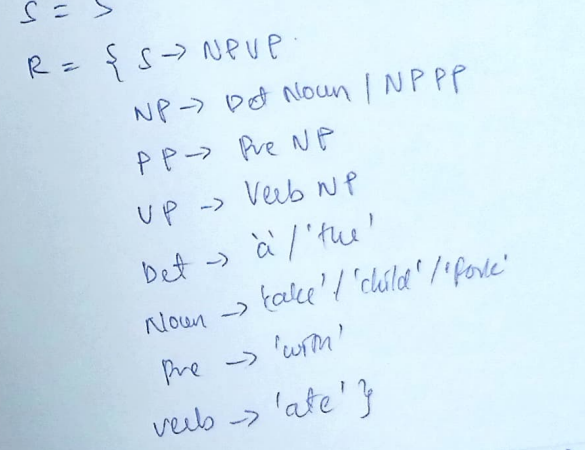 S = S
R = { S → NP VP
NP → Det Noun | NP PP
PP → Pre NP
VP → Verb NP
Det → 'a' / 'the'
Noun → 'cake' / 'child' / 'fork'
Pre → 'with'
verb → 'ate' }